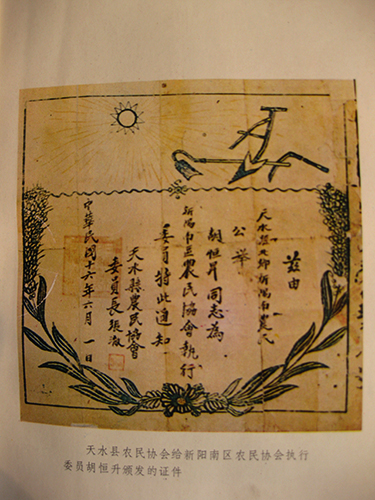 兹由
天水县
公举
胡恒升同志为
新阳南区农民协會执行
委員特此通知
天水縣農民協會
委員長張
中華民國十六年六月一日
天水县农民协会给新阳南区农民协会执行
委员胡恒升颁发的证件